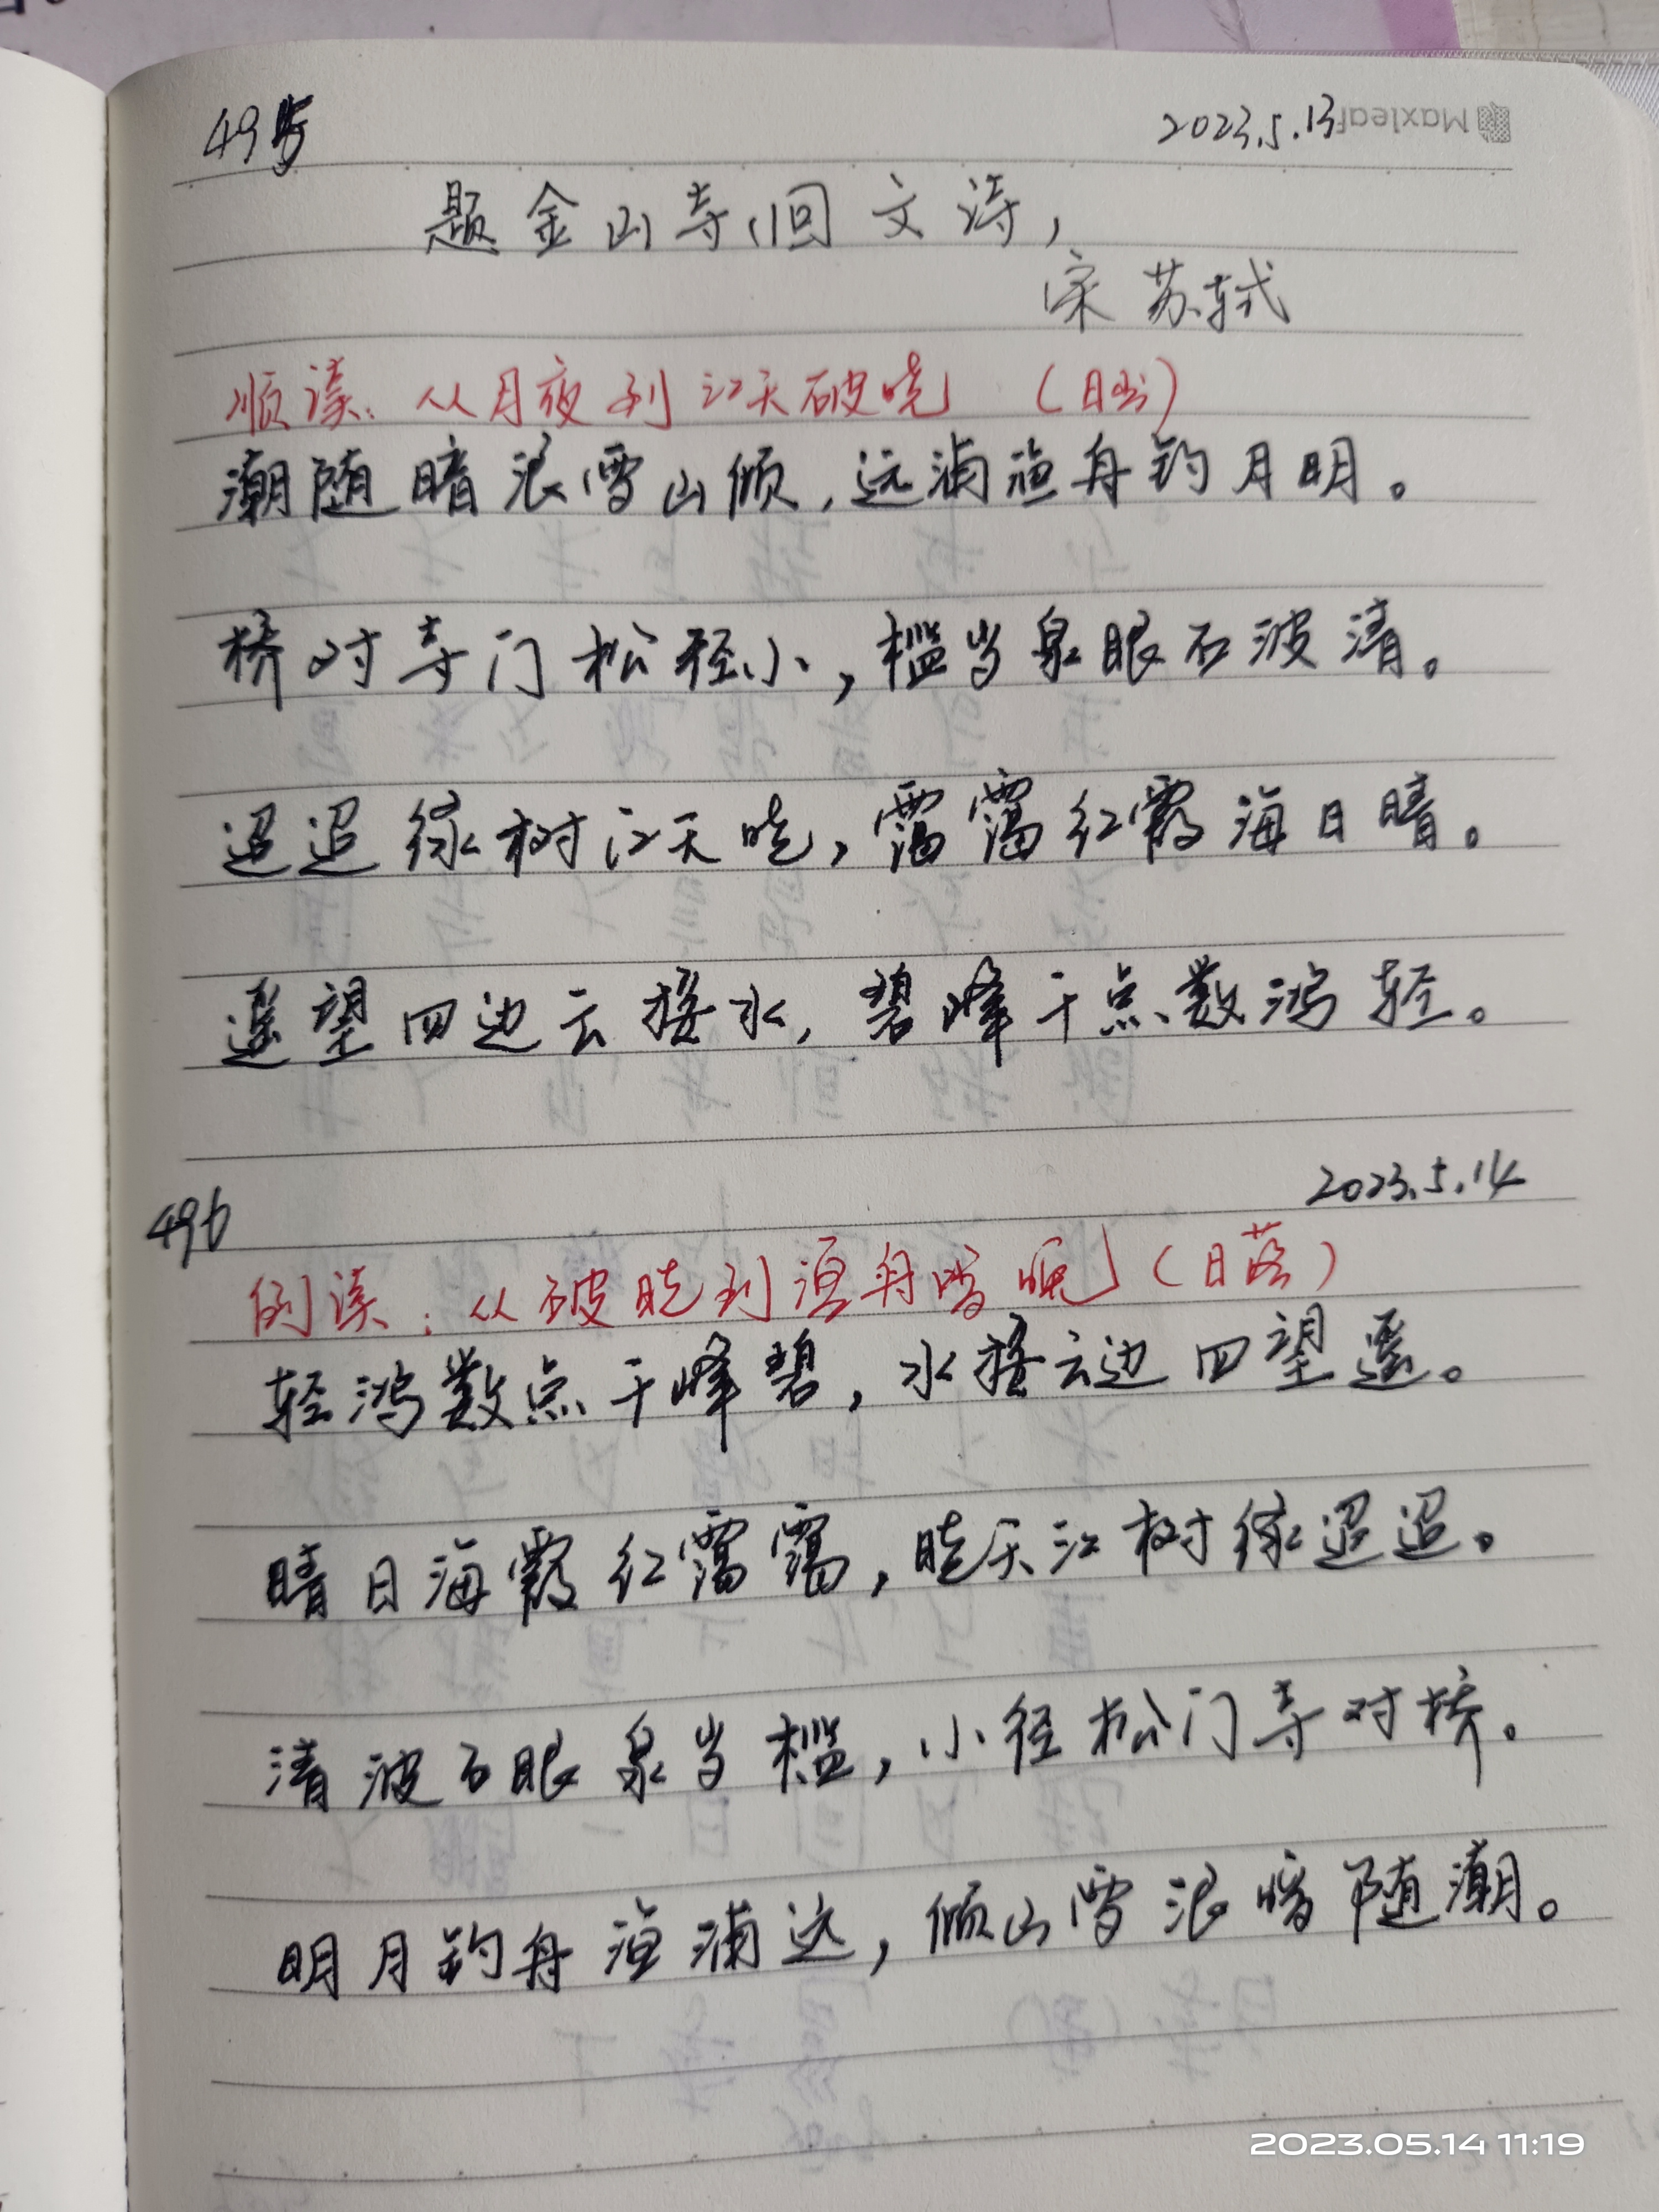 495
2023.5.13
Maxleaf
题金山寺(回文诗,
宋 苏轼
顺读: 从月夜到江天破晓 (日出)
潮随暗浪雪山倾,远浦渔舟钓月明。
桥对寺门松径小,槛当泉眼石波清。
迢迢绿树江天晓,霭霭红霞海日晴。
遥望四边云接水,碧峰千点数鸿轻。
2023.5.14
496
倒读: 从破晓到渔舟唱晚 (日落)
轻鸿数点千峰碧,水接云边四望遥。
晴日海霞红霭霭,晓天江树绿迢迢。
清波石眼泉当槛,小径松门寺对桥。
明月钓舟渔浦远,倾山雪浪暗随潮。
2023.05.14 11:19